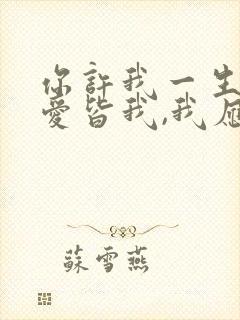 你許我一生
愛皆我,我
蘇雪燕